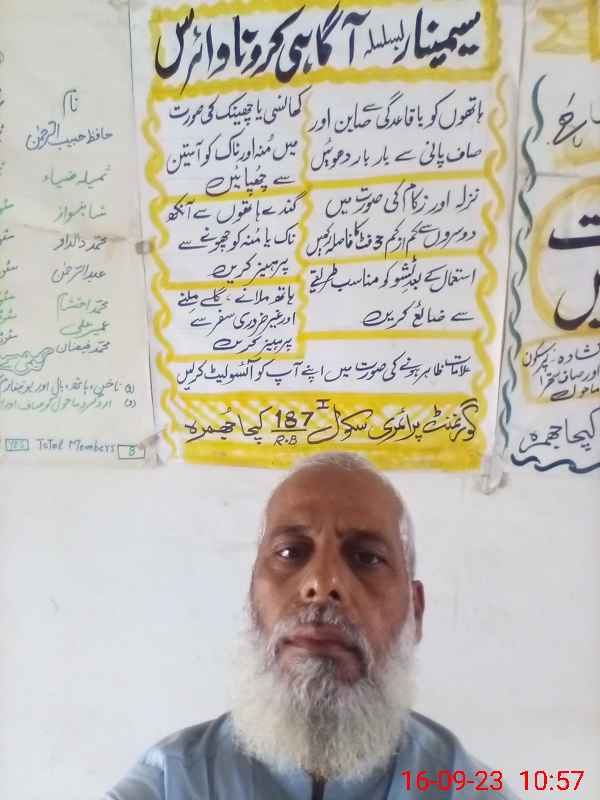 سیمینار بسلسلہ آگاہی کرونا وائرس
ہاتھوں کو باقاعدگی سے صابن اور
صاف پانی سے بار بار دھوئیں
کھانسی یا چھینک کی صورت
میں مُنہ اور ناک کو آستین
سے چھپائیں
نزلہ اور زکام کی صورت میں
دوسروں سے کم از کم 3 فٹ کا فاصلہ رکھیں
گندے ہاتھوں سے آنکھ
ناک یا مُنہ کو چھونے سے
پرہیز کریں
استعمال کے بعد ٹشو کو مناسب طریقے
سے ضائع کریں
ہاتھ ملانے، گلے ملنے
اور غیر ضروری سفر سے
پرہیز کریں
علامات ظاہر ہونے کی صورت میں اپنے آپ کو آئسولیٹ کرلیں
گورنمنٹ پرائمری سکول 187 I R.B کچا جھمرہ
نام
حافظ حبیب الرحمٰن
ثمیلہ ضیاء
شاہنواز
محمد دلاور
عبدالرحمٰن
محمد احتشام
عمر علی
محمد فیضان
YES Total Members 8
کچا جھمرہ
16-09-23 10:57